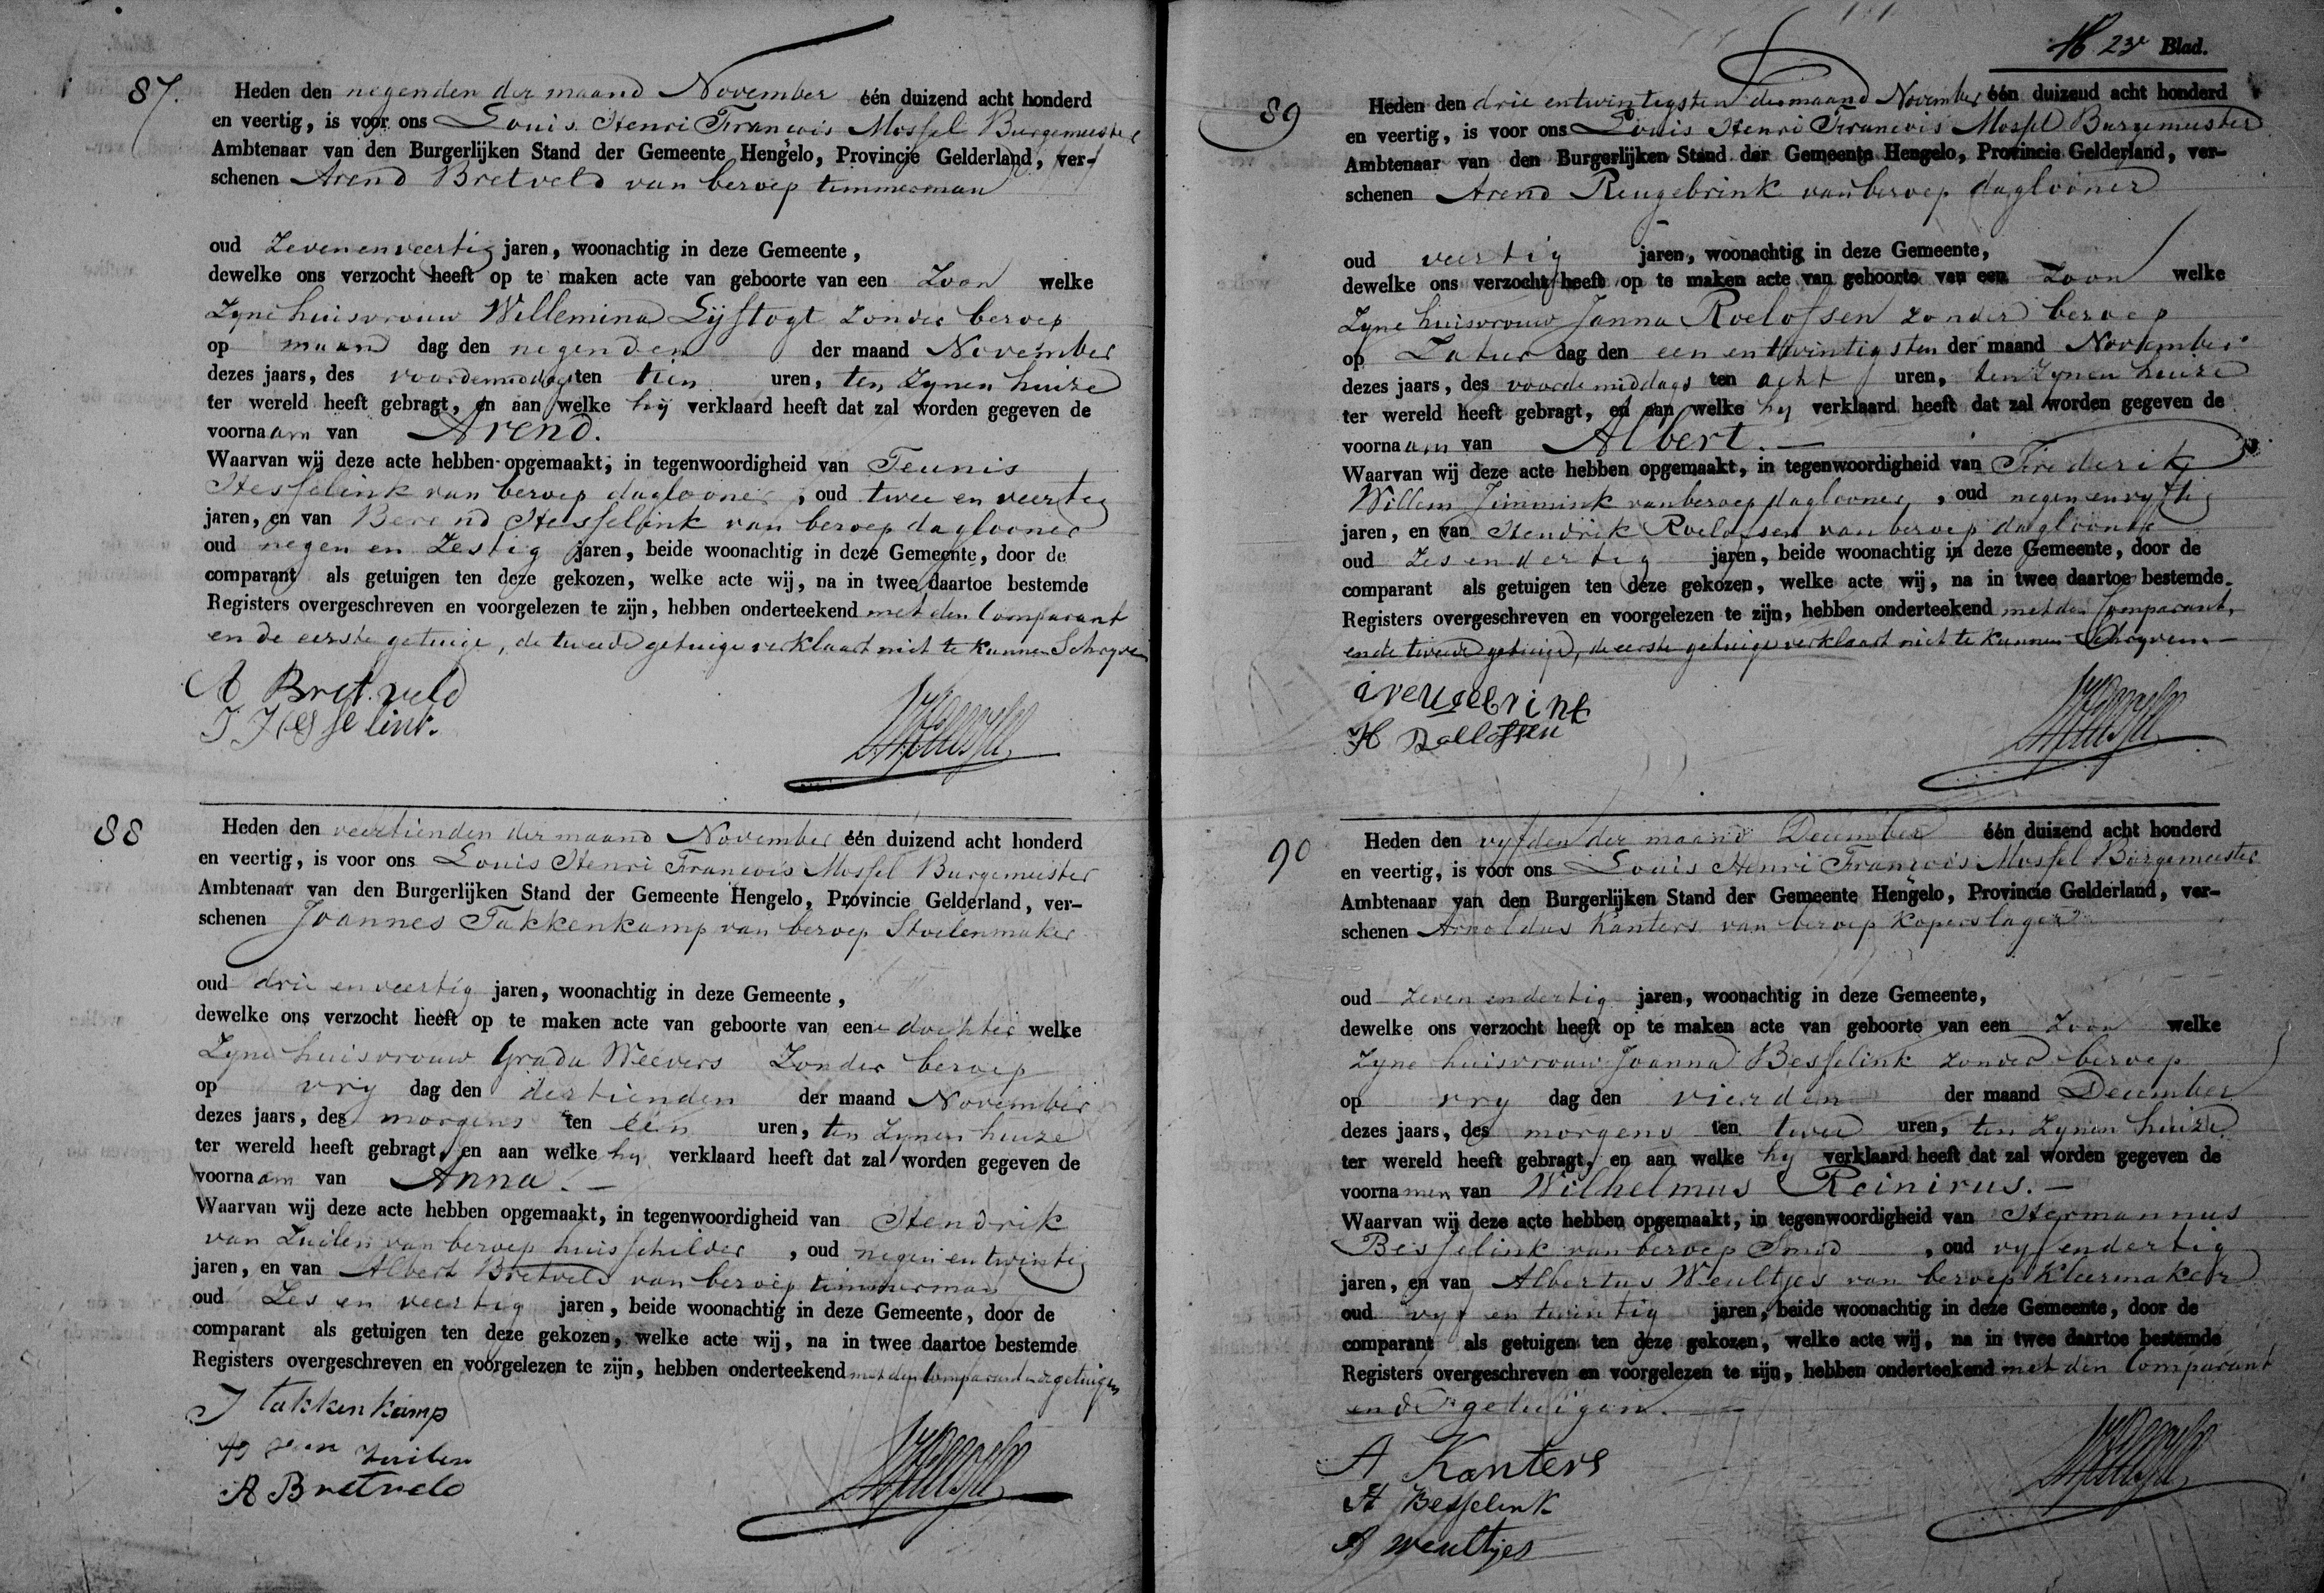 87.
Heden den negenden der maand November één duizend acht honderd
en veertig, is voor ons Louis Henri Francois Mossel Burgemeester
Ambtenaar van den Burgerlijken Stand der Gemeente Hengelo, Provincie Gelderland, ver-
schenen Arend Bretveld van beroep timmerman
oud Zevenenveertig jaren, woonachtig in deze Gemeente,
dewelke ons verzocht heeft op te maken acte van geboorte van een Zoon welke
Zyne huisvrouw Willemina Lijftogt zonder beroep
op maan dag den negenden der maand November
dezes jaars, des voordemiddags ten tien uren, ten Zynen huize
ter wereld heeft gebragt, en aan welke hij verklaard heeft dat zal worden gegeven de
voornaam van Arend.
Waarvan wij deze acte hebben opgemaakt, in tegenwoordigheid van Teunis
Hesselink van beroep daglooner, oud twee en veertig
jaren, en van Berend Hesselink van beroep daglooner
oud negen en Zestig jaren, beide woonachtig in deze Gemeente, door de
comparant als getuigen ten deze gekozen, welke acte wij, na in twee daartoe bestemde
Registers overgeschreven en voorgelezen te zijn, hebben onderteekend met den Comparant
en de eerste getuige, de tweede getuige verklaart niet te kunnen Schryven
A Bretveld
T Hesselink.
88
Heden den veertienden der maand November één duizend acht honderd
en veertig, is voor ons Louis Henri Francois Mossel Burgemeester
Ambtenaar van den Burgerlijken Stand der Gemeente Hengelo, Provincie Gelderland, ver-
schenen Joannes Takkenkamp van beroep Stoelenmaker
oud drie en veertig jaren, woonachtig in deze Gemeente,
dewelke ons verzocht heeft op te maken acte van geboorte van eene dochter welke
Zyne huisvrouw Grada Weevers Zonder beroep
op vry dag den dertienden der maand November
dezes jaars, des morgens ten één uren, ten Zynen huize
ter wereld heeft gebragt, en aan welke hy verklaard heeft dat zal worden gegeven de
voornaam van Anna.
Waarvan wij deze acte hebben opgemaakt, in tegenwoordigheid van Hendrik
van Zuilen van beroep huisschilder, oud negen en twintig
jaren, en van Albert Bretveld van beroep timmerman
oud Zes en veertig jaren, beide woonachtig in deze Gemeente, door de
comparant als getuigen ten deze gekozen, welke acte wij, na in twee daartoe bestemde
Registers overgeschreven en voorgelezen te zijn, hebben onderteekend met den Comparant en de getuigen
J takkenkamp
H van Zuilen
A Bretveld
23e Blad.
89
Heden den drie entwintigsten der maand November één duizend acht honderd
en veertig, is voor ons Louis Henri Francois Mossel Burgemeester
Ambtenaar van den Burgerlijken Stand der Gemeente Hengelo, Provincie Gelderland, ver-
schenen Arend Reugebrink van beroep daglooner
oud veertig jaren, woonachtig in deze Gemeente,
dewelke ons verzocht heeft op te maken acte van geboorte van een Zoon welke
Zyne huisvrouw Janna Roelofsen zonder beroep
op Zatur dag den een entwintigsten der maand November
dezes jaars, des voordemiddags ten acht uren, ten Zynen huize
ter wereld heeft gebragt, en aan welke hy verklaard heeft dat zal worden gegeven de
voornaam van Albert.
Waarvan wij deze acte hebben opgemaakt, in tegenwoordigheid van Frederik
Willem Jimmink van beroep daglooner, oud negenenvyftig
jaren, en van Hendrik Roelofsen van beroep daglooner
oud Zesendertig jaren, beide woonachtig in deze Gemeente, door de
comparant als getuigen ten deze gekozen, welke acte wij, na in twee daartoe bestemde
Registers overgeschreven en voorgelezen te zijn, hebben onderteekend met den Comparant,
en de tweede getuige, de eerste getuige verklaart niet te kunnen Schryven
a reugebrink
H Roellofsen
90
Heden den vyfden der maand December één duizend acht honderd
en veertig, is voor ons Louis Henri Francois Mossel Burgemeester
Ambtenaar van den Burgerlijken Stand der Gemeente Hengelo, Provincie Gelderland, ver-
schenen Arnoldus Kanters van beroep Koperslager
oud Zeven endertig jaren, woonachtig in deze Gemeente,
dewelke ons verzocht heeft op te maken acte van geboorte van een Zoon welke
Zyne huisvrouw Joanna Besselink zonder beroep
op vry dag den vierden der maand December
dezes jaars, des morgens ten twee uren, ten Zynen huize
ter wereld heeft gebragt, en aan welke hy verklaard heeft dat zal worden gegeven de
voornamen van Wilhelmus Reinirus.
Waarvan wij deze acte hebben opgemaakt, in tegenwoordigheid van Hermannus
Besselink van beroep Smid, oud vyfendertig
jaren, en van Albertus Weultjes van beroep Kleermaker
oud vyf en twintig jaren, beide woonachtig in deze Gemeente, door de
comparant als getuigen ten deze gekozen, welke acte wij, na in twee daartoe bestemde
Registers overgeschreven en voorgelezen te zijn, hebben onderteekend met den Comparant
en de getuigen.
A Kanters
H Besselink
A Weultjes